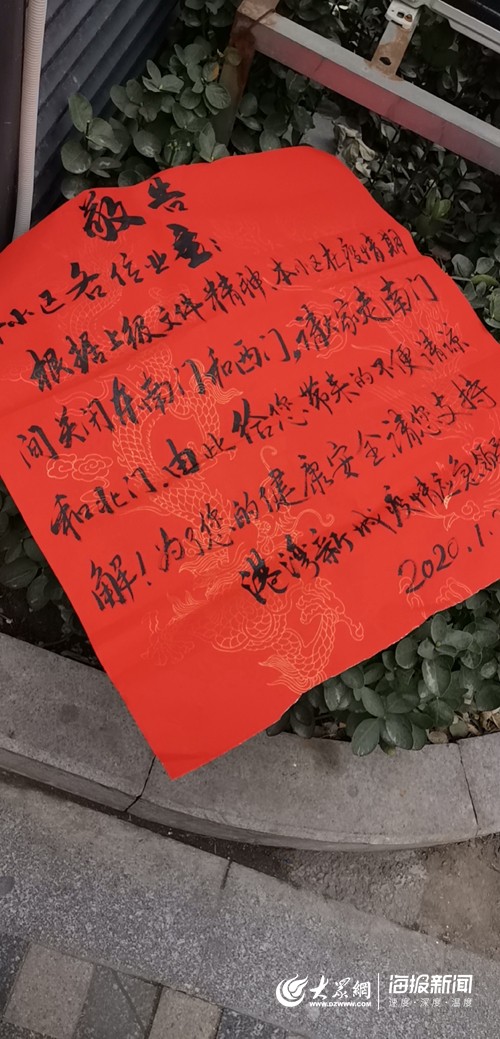 敬告
小区各位业主:
根据上级文件精神,本小区在疫情期
间关闭东南门和西门,请大家走南门
和北门,由此给您带来的不便请谅
解!为了您的健康安全请您支持
港湾新城疫情应急领
2020.1.
大众网
WWW.DZWWW.COM
海报新闻
速度·深度·温度